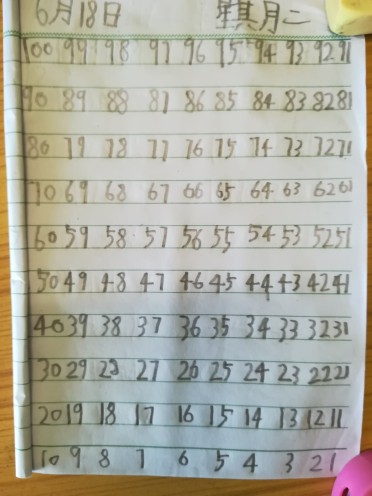 6月18日 星其月二
100 99 98 97 96 95 94 93 92 91
90 89 88 87 86 85 84 83 82 81
80 79 78 77 76 75 74 73 72 71
70 69 68 67 66 65 64 63 62 61
60 59 58 57 56 55 54 53 52 51
50 49 48 47 46 45 44 43 42 41
40 39 38 37 36 35 34 33 32 31
30 29 28 27 26 25 24 23 22 21
20 19 18 17 16 15 14 13 12 11
10 9 8 7 6 5 4 3 2 1